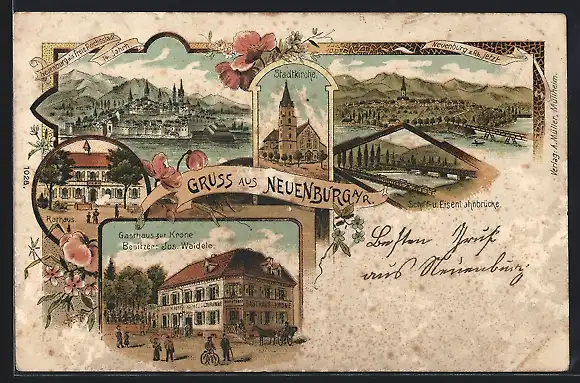 Neuenburg als freie Reichsstadt
14. Jahrh.
Stadtkirche.
Neuenburg a. Rh. jetzt.
Verlag: A. Müller, Müllheim.
1028.
Rathaus.
GRUSS AUS NEUENBURG A/R.
Schiff- u. Eisenbahnbrücke.
Gasthaus zur Krone
Besitzer: Jos. Waidele.
Besten Gruß
aus Neuenburg